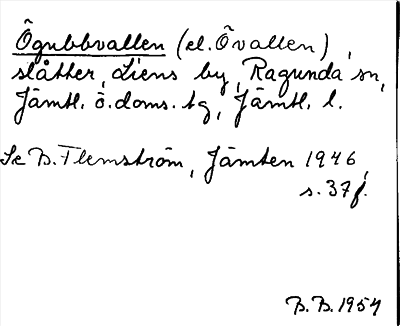 Ögubbvallen (el. Övallen),
slåtter, Liens by, Ragunda sn,
Jämtl. ö. doms. tg, Jämtl. l.
Se B. Flemström, Jämten 1946,
s. 37f.
B.B. 1954